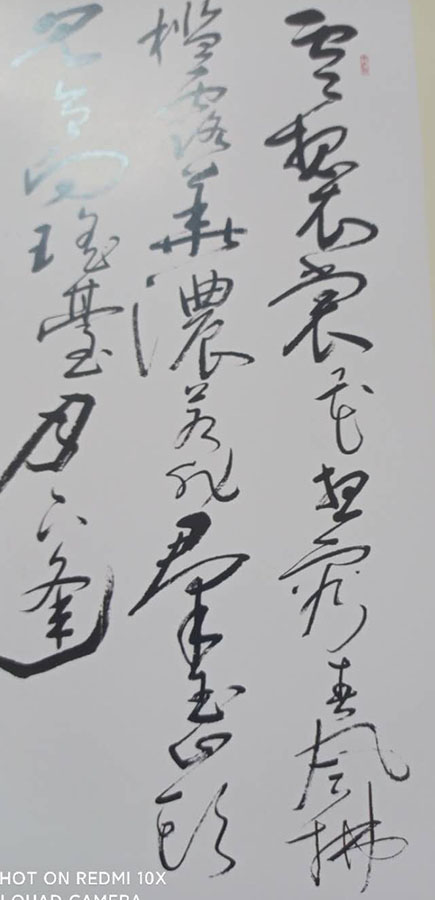 雲想衣裳花想容春風拂
檻露華濃若非羣玉山頭
見會向瑤臺月下逢
HOT ON REDMI 10X
CAMERA